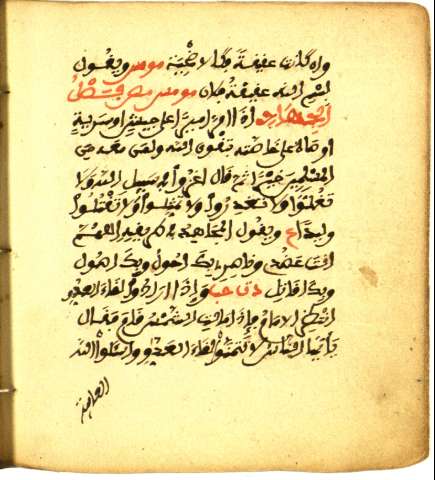 وان كانت عقيقة فكالاضحية مومس ويقول
بسم الله عقيقة فلان مومس مص
الجهاد اذا امر اميرا على جيش او سرية
اوصاه في خاصته بتقوى الله ولمن معه من
المسلمين خيرا ثم قال اغزوا في سبيل الله ولا
تغلوا ولا تغدروا ولا تمثلوا ولا تقتلوا
وليدا ع ويقول المجاهد اللهم
انت عضدي ونصيري بك احول وبك اصول
وبك اقاتل دت حب واذا ارادوا لقاء العدو
انتظر الامام فاذا مالت الشمس قام فقال
يا ايها الناس لا تتمنوا لقاء العدو واسئلوا الله
العافية